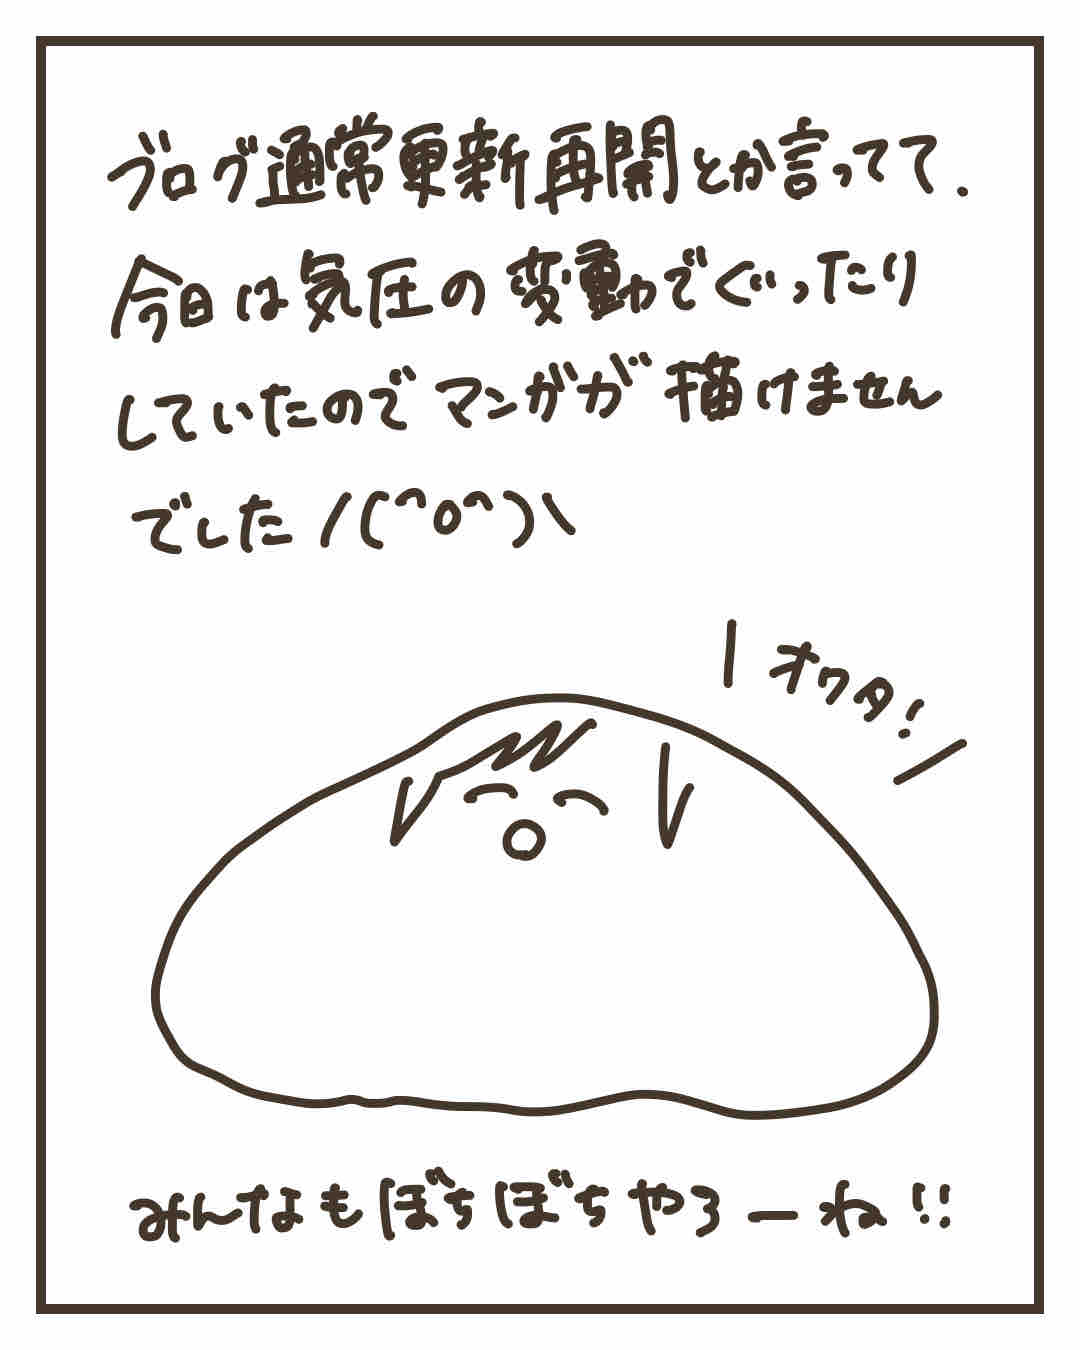 ブログ通常更新再開とか言ってて.
今日は気圧の変動でぐったり
していたのでマンガが描けません
でした /(^o^)\
オワタ!
みんなもぼちぼちやろーね!!